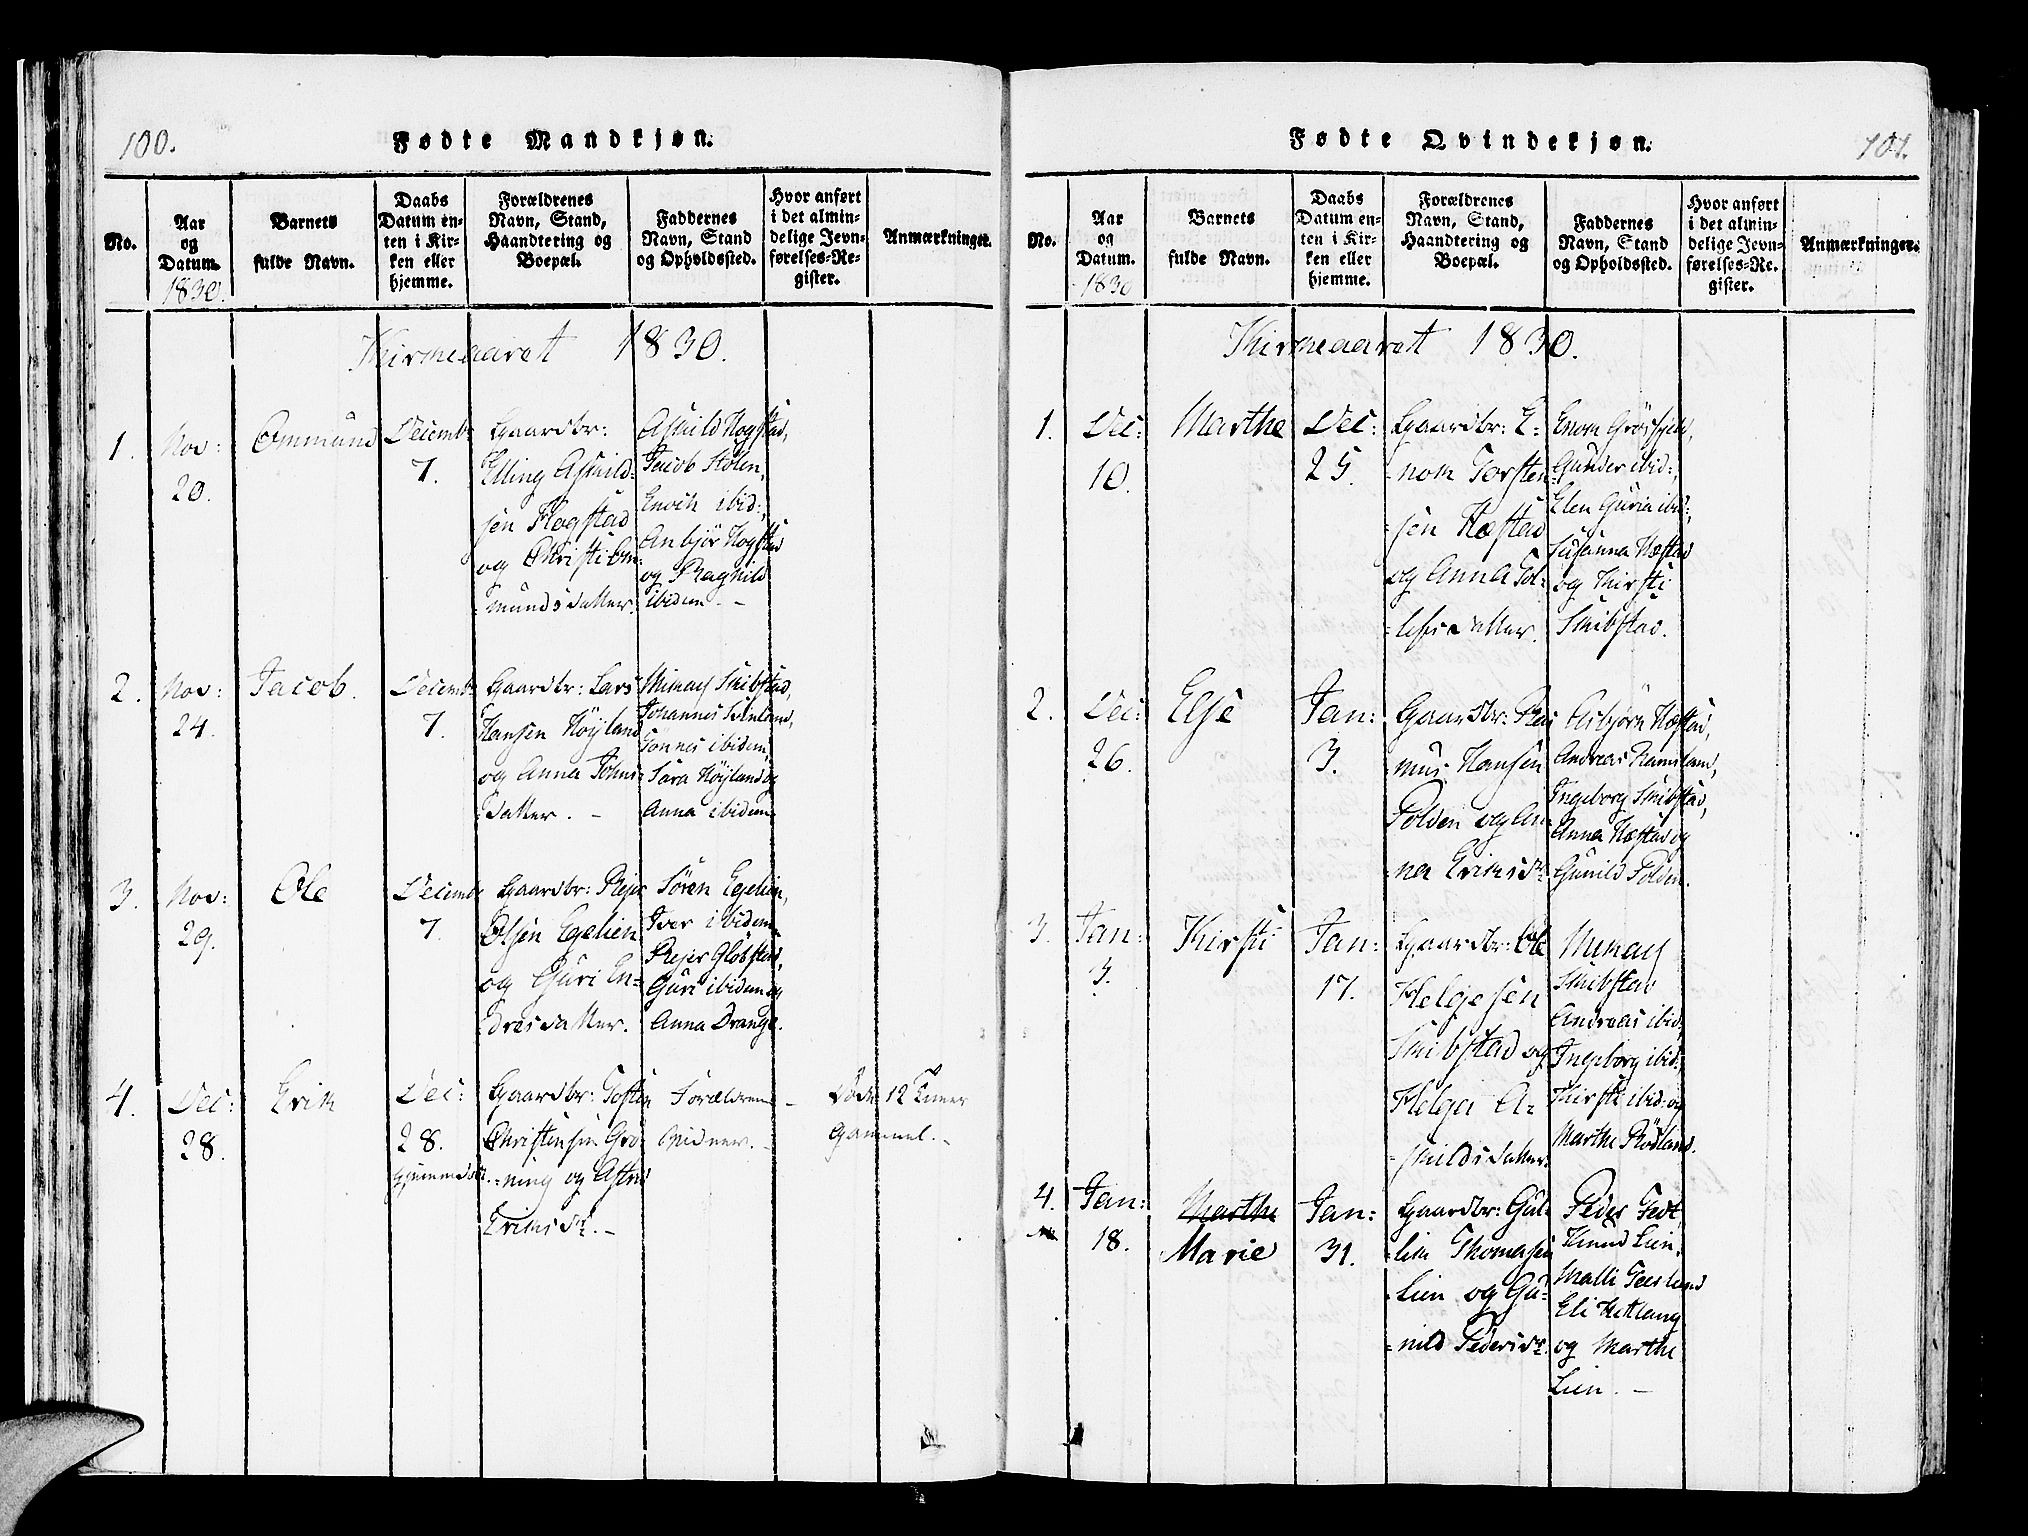 100.
Fødte Mandkjøn.
No.
Aar
og
Datum.
1830.
Barnets
fulde Navn.
Daabs
Datum en-
ten i Kir-
ken eller
hjemme.
Forældrenes
Navn, Stand,
Haandtering og
Boepæl.
Faddernes
Navn, Stand
og Opholdssted.
Hvor anført
i det almin-
delige Jevn-
førelses-Re-
gister.
Anmærkninger.
Kirkeaaret 1830.
1.
Nov:
20.
Ommund
Decembr
7.
Gaardbr:
Elling Askild-
sen Hogstad
og Christi Om-
mundsdatter.
Askild Hogstad,
Jacob Stölen,
Enoch ibid:,
Anbjör Hogstad
og Ragnild
ibidem. -
2.
Nov:
24.
Jacob.
Decembr
7.
Gaardbr: Lars
Hansen Höyland
og Anna Johns-
datter. -
Mikael Skibstad,
Johannes
Tönnes ibidem,
Sara Höyland og
Anna ibidem
3.
Nov:
29.
Ole
Decembr
7.
Gaardbr: Rejer
Olsen Egelien
og Guri En-
dresdatter.
Sören Egelien,
Iver ibidem,
Rejer Glöbstad,
Guri ibidem og
Anna Drange.
4.
Dec:
28.
Erik
Dec:
28.
hjemmedöbt.
Gaardbr: Tosten
Christensen Grö-
ning og Astrid
Eriksdr. -
Forældrene
Vidner. -
Döde 12 Timer
Gammel. -
101.
Fødte Qvindekjøn.
No.
Aar
og
Datum.
1830
Barnets
fulde Navn.
Daabs
Datum en-
ten i Kir-
ken eller
hjemme.
Forældrenes
Navn, Stand,
Haandtering og
Boepæl.
Faddernes
Navn, Stand
og Opholdssted.
Hvor anført
i det almin-
delige Jevn-
førelses-Re-
gister.
Anmærkninger.
Kirkeaaret 1830.
1.
Dec:
10.
Marthe
Dec:
25.
Gaardbr: E-
nok Torsten-
sen Hæstad
og Anna Tol-
lefsdatter.
Enok Grösfjeld,
Gunder ibid:,
Elen Guria ibid:,
Susanna Hæstad
og Kirsti
Skibstad.
2.
Dec:
26.
Else
Jan:
3.
Gaardbr: Ras
mus Hansen
Folden og An-
na Eriksdr.
Asbjörn Hæstad,
Andreas Ramsland,
Ingeborg Skibstad,
Anna Hæstad og
Gunild Folden.
3.
Jan:
3.
Kirsti
Jan:
17.
Gaardbr: Ole
Helgesen
Skibstad og
Helga A-
skildsdatter.
Mikael
Skibstad
Andreas ibid:,
Ingeborg ibid:,
Kirsti ibid: og
Marthe Rödland.
4.
Jan:
18.
Marthe
Marie
Jan:
31.
Gaardbr: Gul-
lik Thomasen
Lien og Gu-
nild Pedersdr.
Peder Tvet,
Knud Lien,
Malli
Eli Hetland
og Marthe
Lien. -